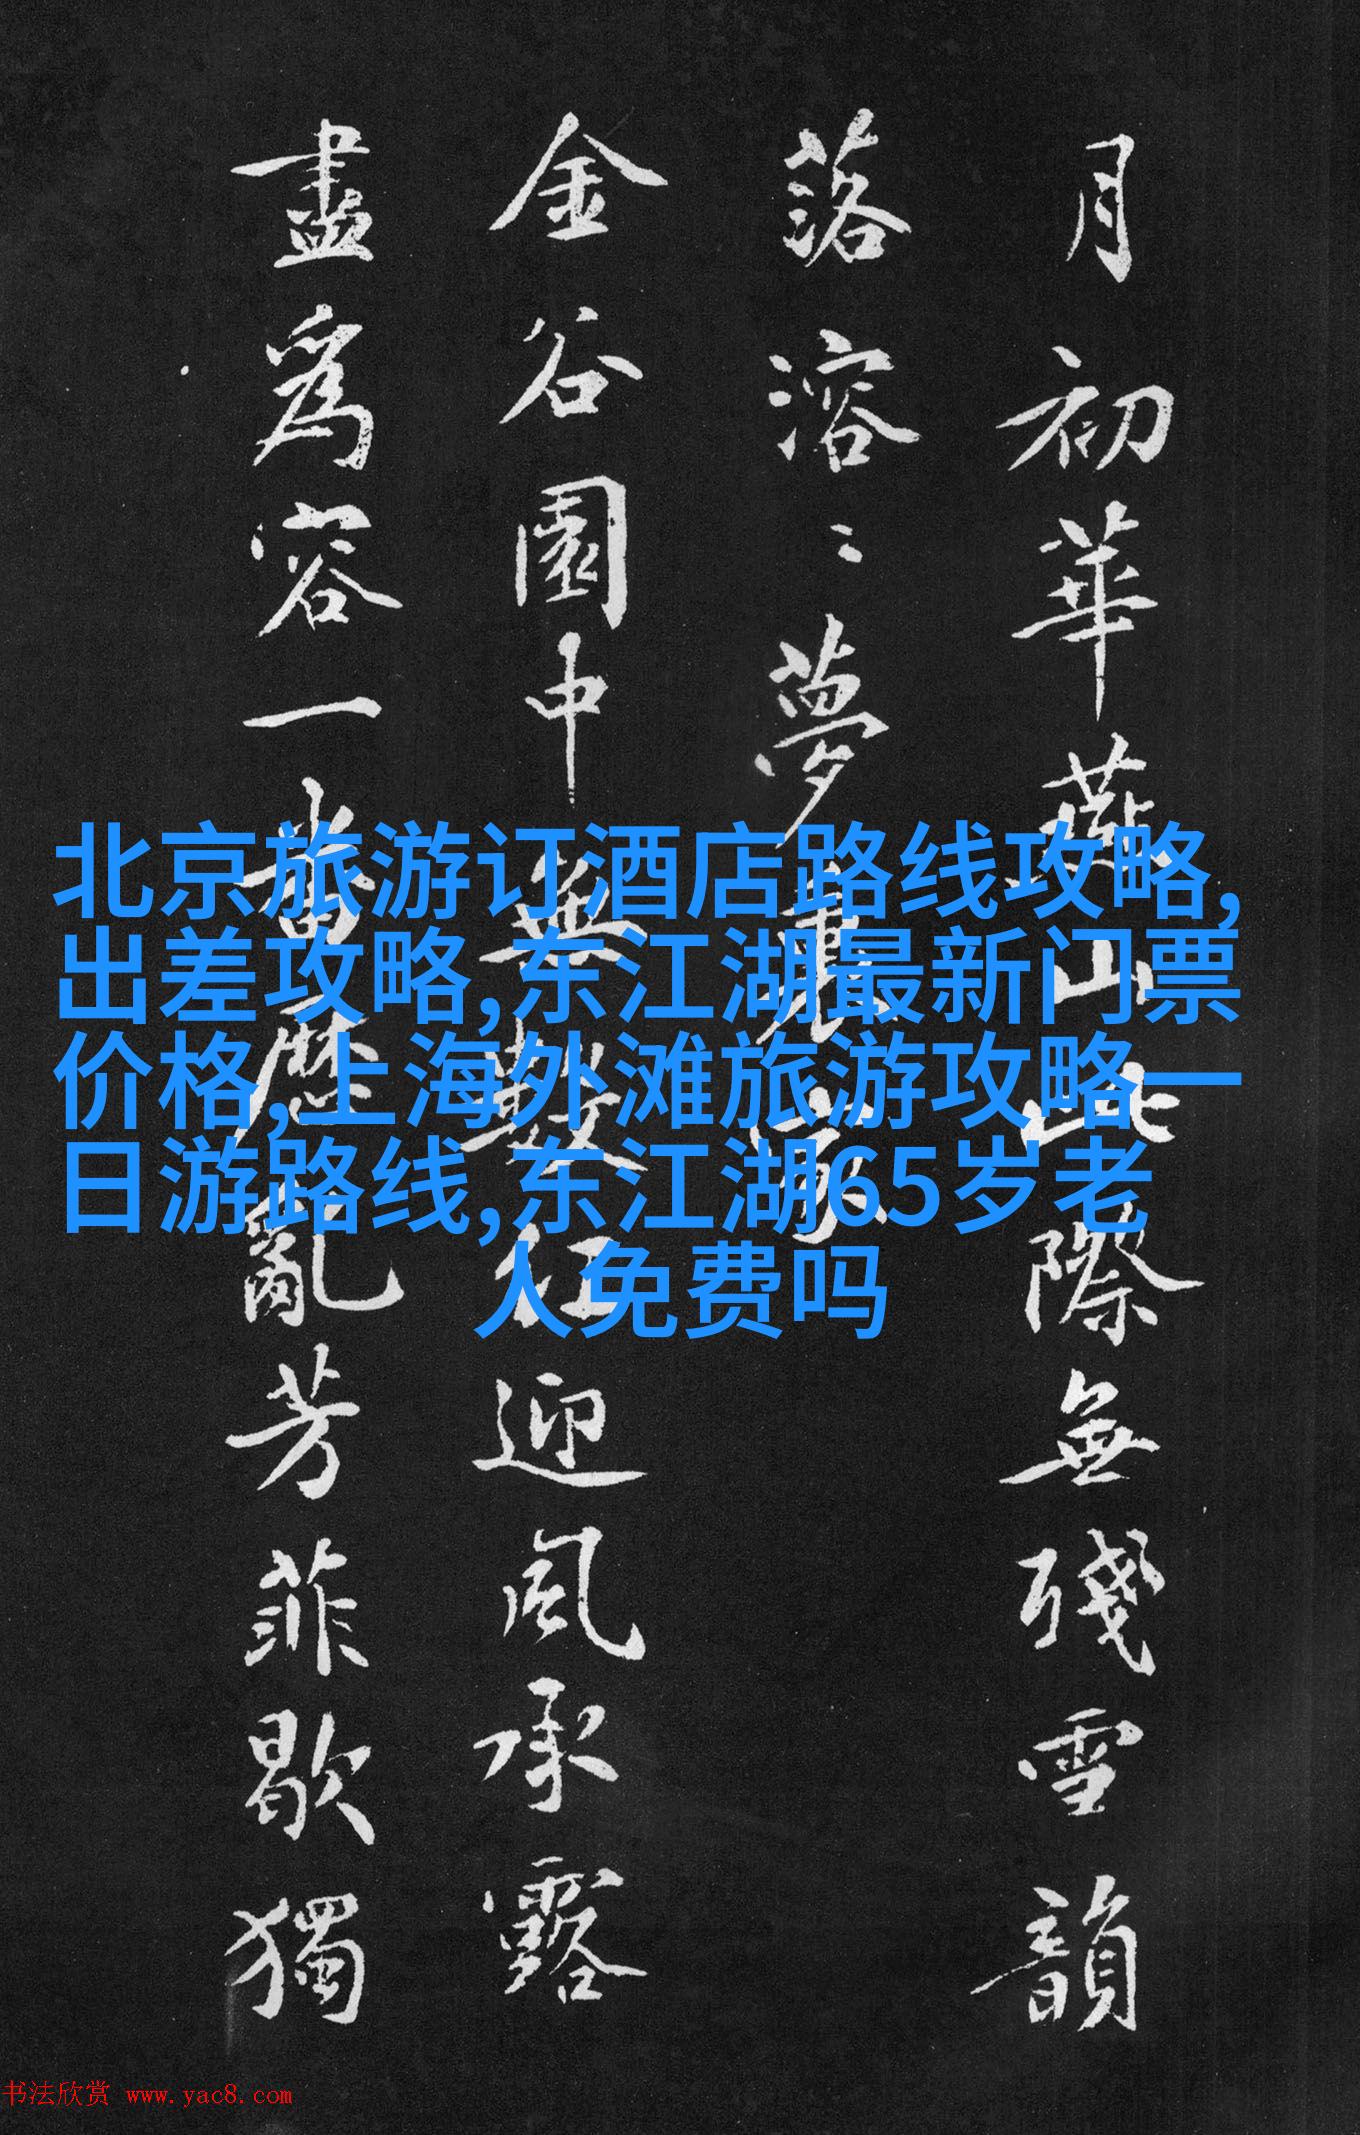 月初華燕山此際無殘雪韻
落溶〻夢裏家
金谷園中無數紅迎風承露
盡為容一番歷亂芳菲歇獨
北京旅游订酒店路线攻略,
出差攻略,东江湖最新门票
价格,上海外滩旅游攻略一
日游路线,东江湖65岁老
人免费吗
书法欣赏 www.yac8.com